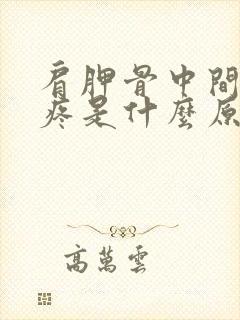 肩胛骨中間
疼是什麼原
高萬雲